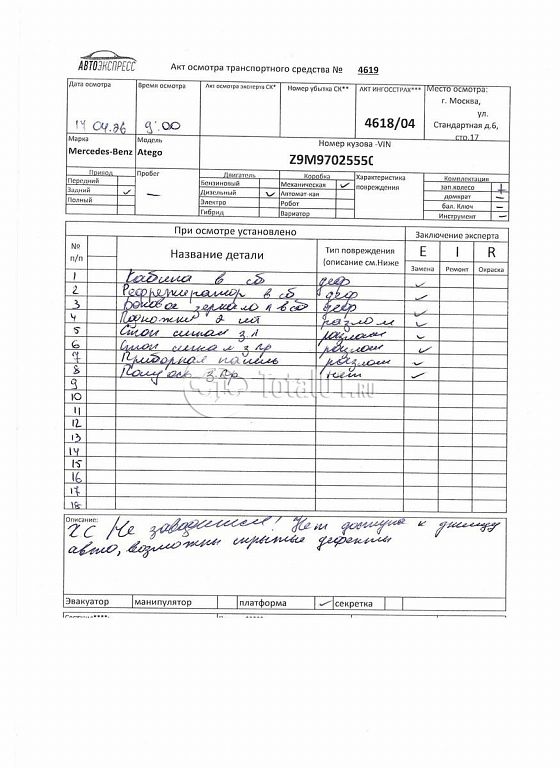 АВТОЭКСПРЕСС
Акт осмотра транспортного средства № 4619
Дата осмотра Время осмотра Акт осмотра эксперта СК* Номер убытка СК** АКТ ИНГОССТРАХ*** Место осмотра:
г. Москва,
ул.
Стандартная д.6,
стр.17
14 04.26 9:00 4618/04
Марка Модель Номер кузова -VIN
Mercedes-Benz Atego Z9M9702555C
Привод Пробег Двигатель Коробка Характеристика повреждения Комплектация
Передний Бензиновый Механическая ✓ зап.колесо +
Задний ✓ — Дизельный ✓ Автомат-кая домкрат —
Полный Электро Робот бал. Ключ —
Гибрид Вариатор Инструмент —
При осмотре установлено Заключение эксперта
№ п/п Название детали Тип повреждения (описание см.Ниже E I R
Замена Ремонт Окраска
1 Кабина в сб деф ✓
2 Рефрежиратор в сб деф ✓
3 Боковое зеркало п в сб деф ✓
4 Подножки 2 разлом ✓
5 Стоп сигнал з л разлом ✓
6 Стоп сигнал з пр разлом ✓
7 Приборная панель разлом ✓
8 Полуось з пр нет ✓
9
10
11
12
13
14
15
16
17
18
TotalO1.RU
Описание: ХС Не заводится! Нет доступа к днищу
авто, возможны скрытые дефекты
Эвакуатор манипулятор платформа ✓ секретка